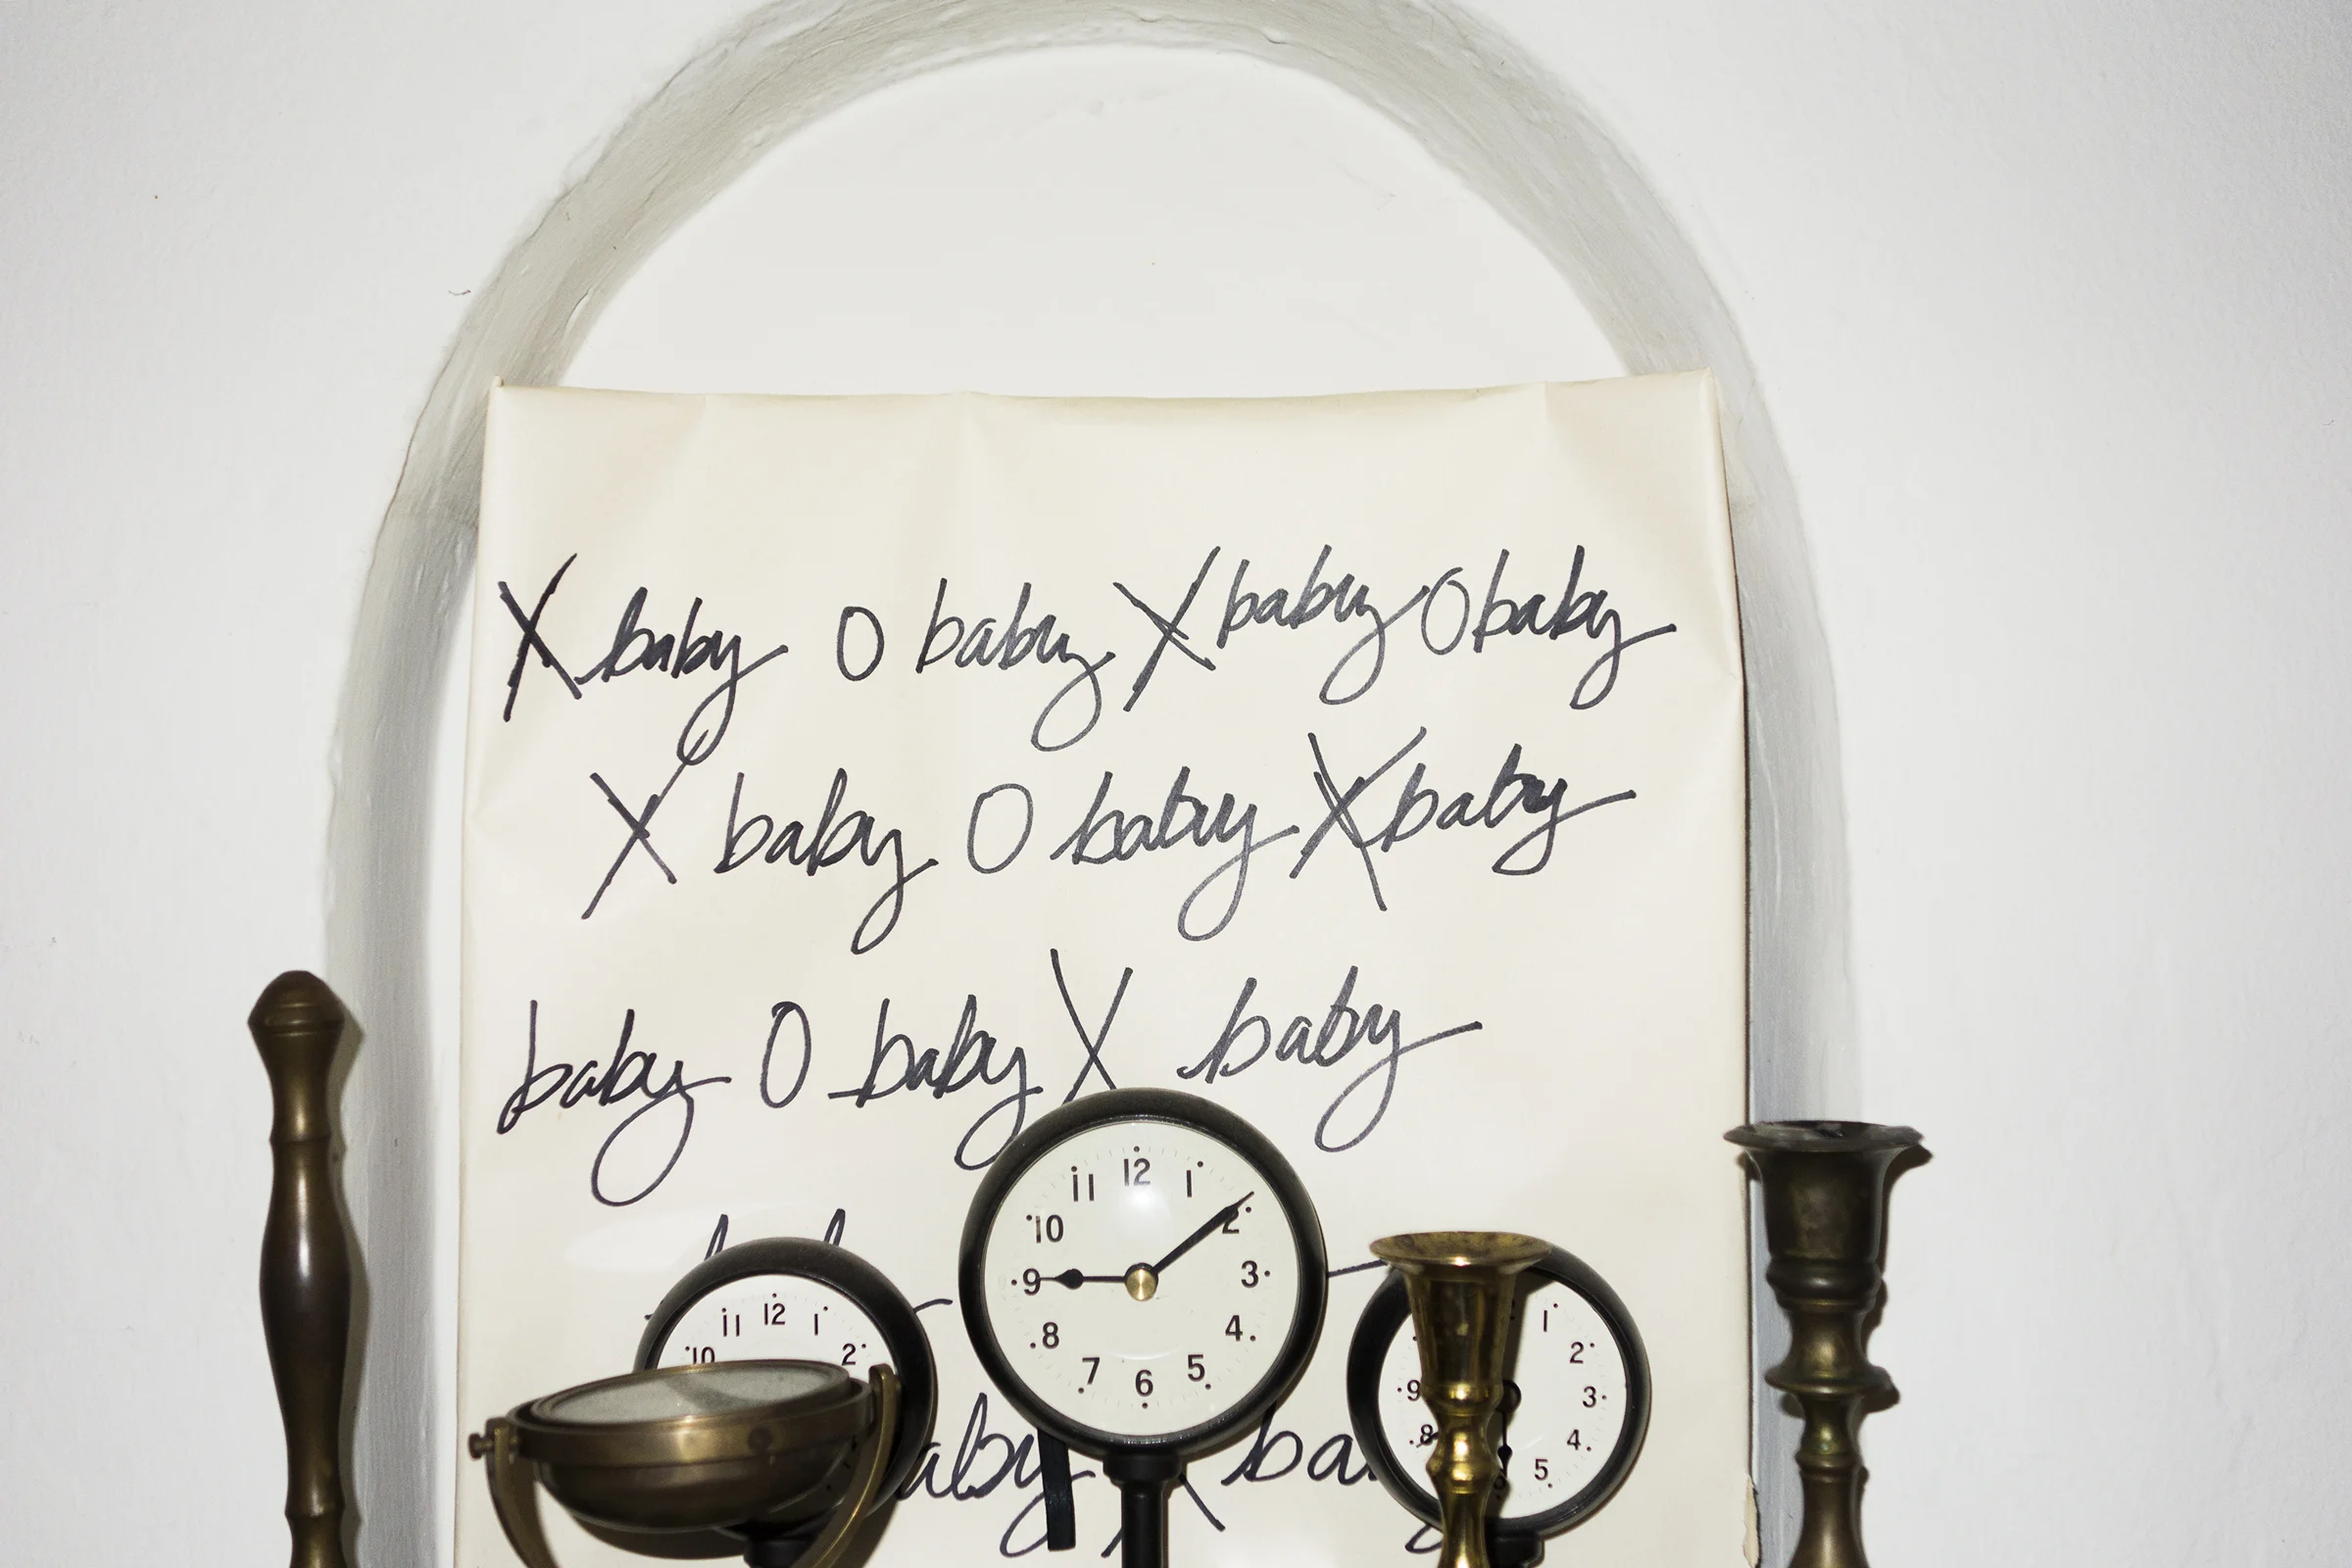 X baby O baby X baby O baby
X baby O baby X baby
baby O baby X baby
12
11 1
10 2
9 3
8 4
7 5
6
12
11 1
10 2
1
2
9 3
8 4
5